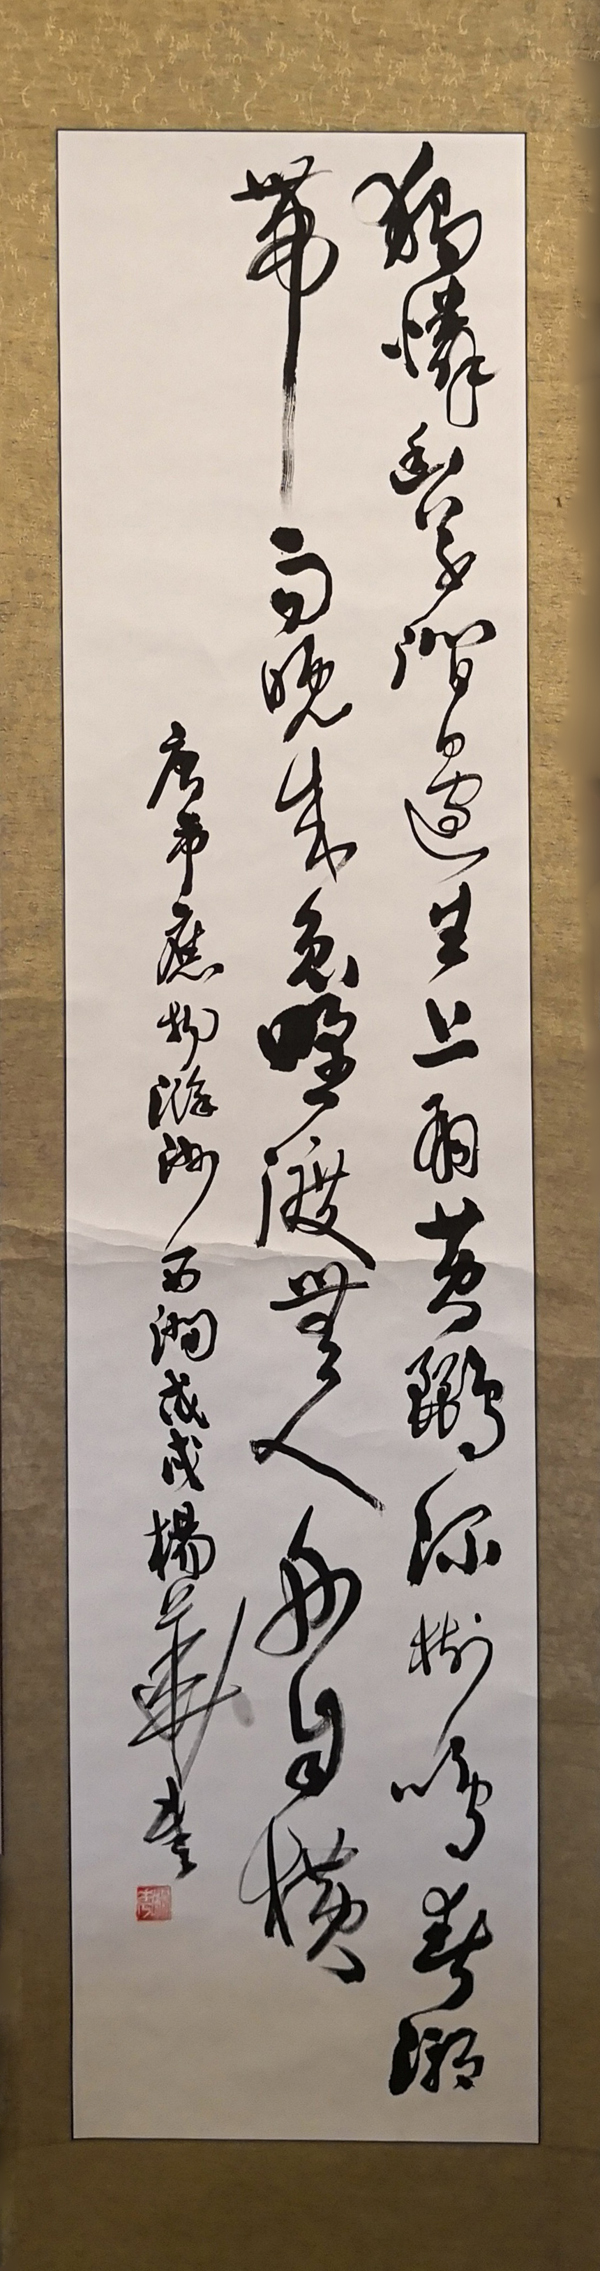 獨憐幽草澗邊生上有黃鸝深樹鳴春潮
帶雨晚來急野渡無人舟自橫
唐韋應物滁州西澗戊戌楊華書